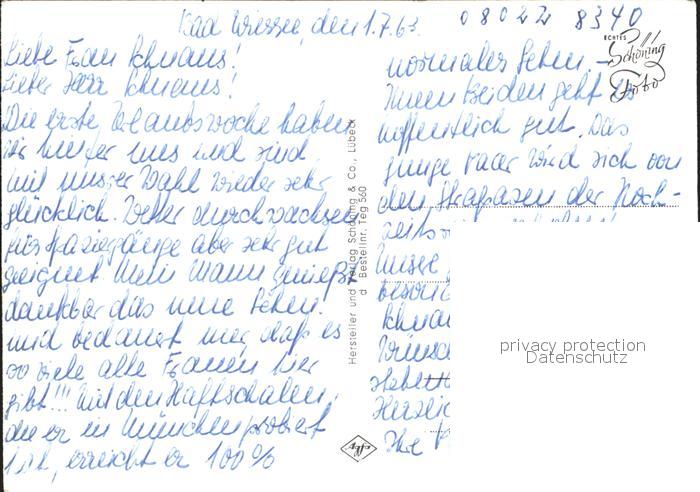 Bad Wiessee, den 1.7.63.
08022 8340
Liebe Frau Schnaus!
Lieber Herr Schnaus!
Die erste Urlaubswoche haben
wir hinter uns und sind
mit unserer Wahl wieder sehr
glücklich. Wetter durchwachsen
für Spaziergänge aber sehr gut
geeignet. Mein Mann genießt
dankbar das neue Sehen.
und bedauert nur, daß es
so viele alte Frauen hier
gibt!!! Mit den Haftschalen,
die er in München probiert
hat, erreicht er 100%
normales Sehen. –
Ihnen beiden geht es
hoffentlich gut. Das
junge Paar wird sich von
den Strapazen der Hoch-
zeits
Unsere
beson
Schnau
Wünsc
Herzlic
Ihre
ECHTES
Schöning
Foto
Hersteller und Verlag Schöning & Co., Lübeck
d Bestellnr. Teg 560
Agfa
privacy protection
Datenschutz